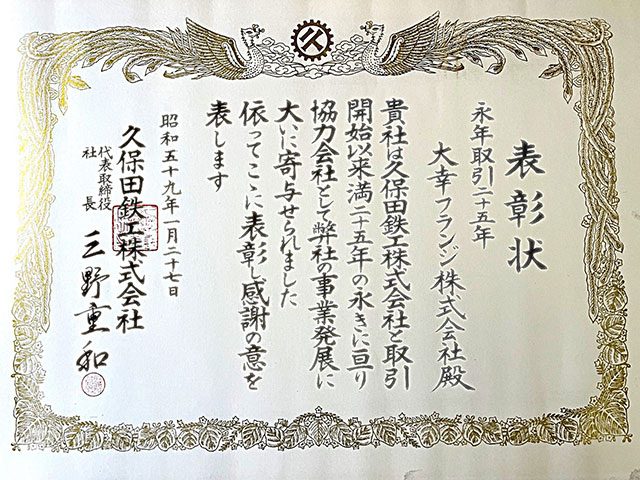 久
表彰状
永年取引二十五年
大幸フランジ株式会社殿
貴社は久保田鉄工株式会社と取引
開始以来満二十五年の永きに亘り
協力会社として弊社の事業発展に
大いに寄与せられました
依ってここに表彰し感謝の意を
表します
昭和五十九年一月二十七日
久保田鉄工株式会社
代表取締役
社長
三野重和